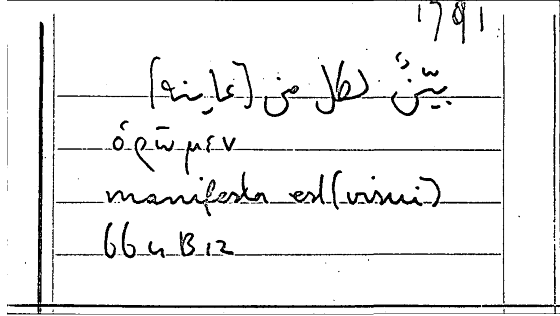 1791
بيّنٌ لكل من [عاينه]
ὁρῶμεν
manifesta est (visui)
66 a B 12